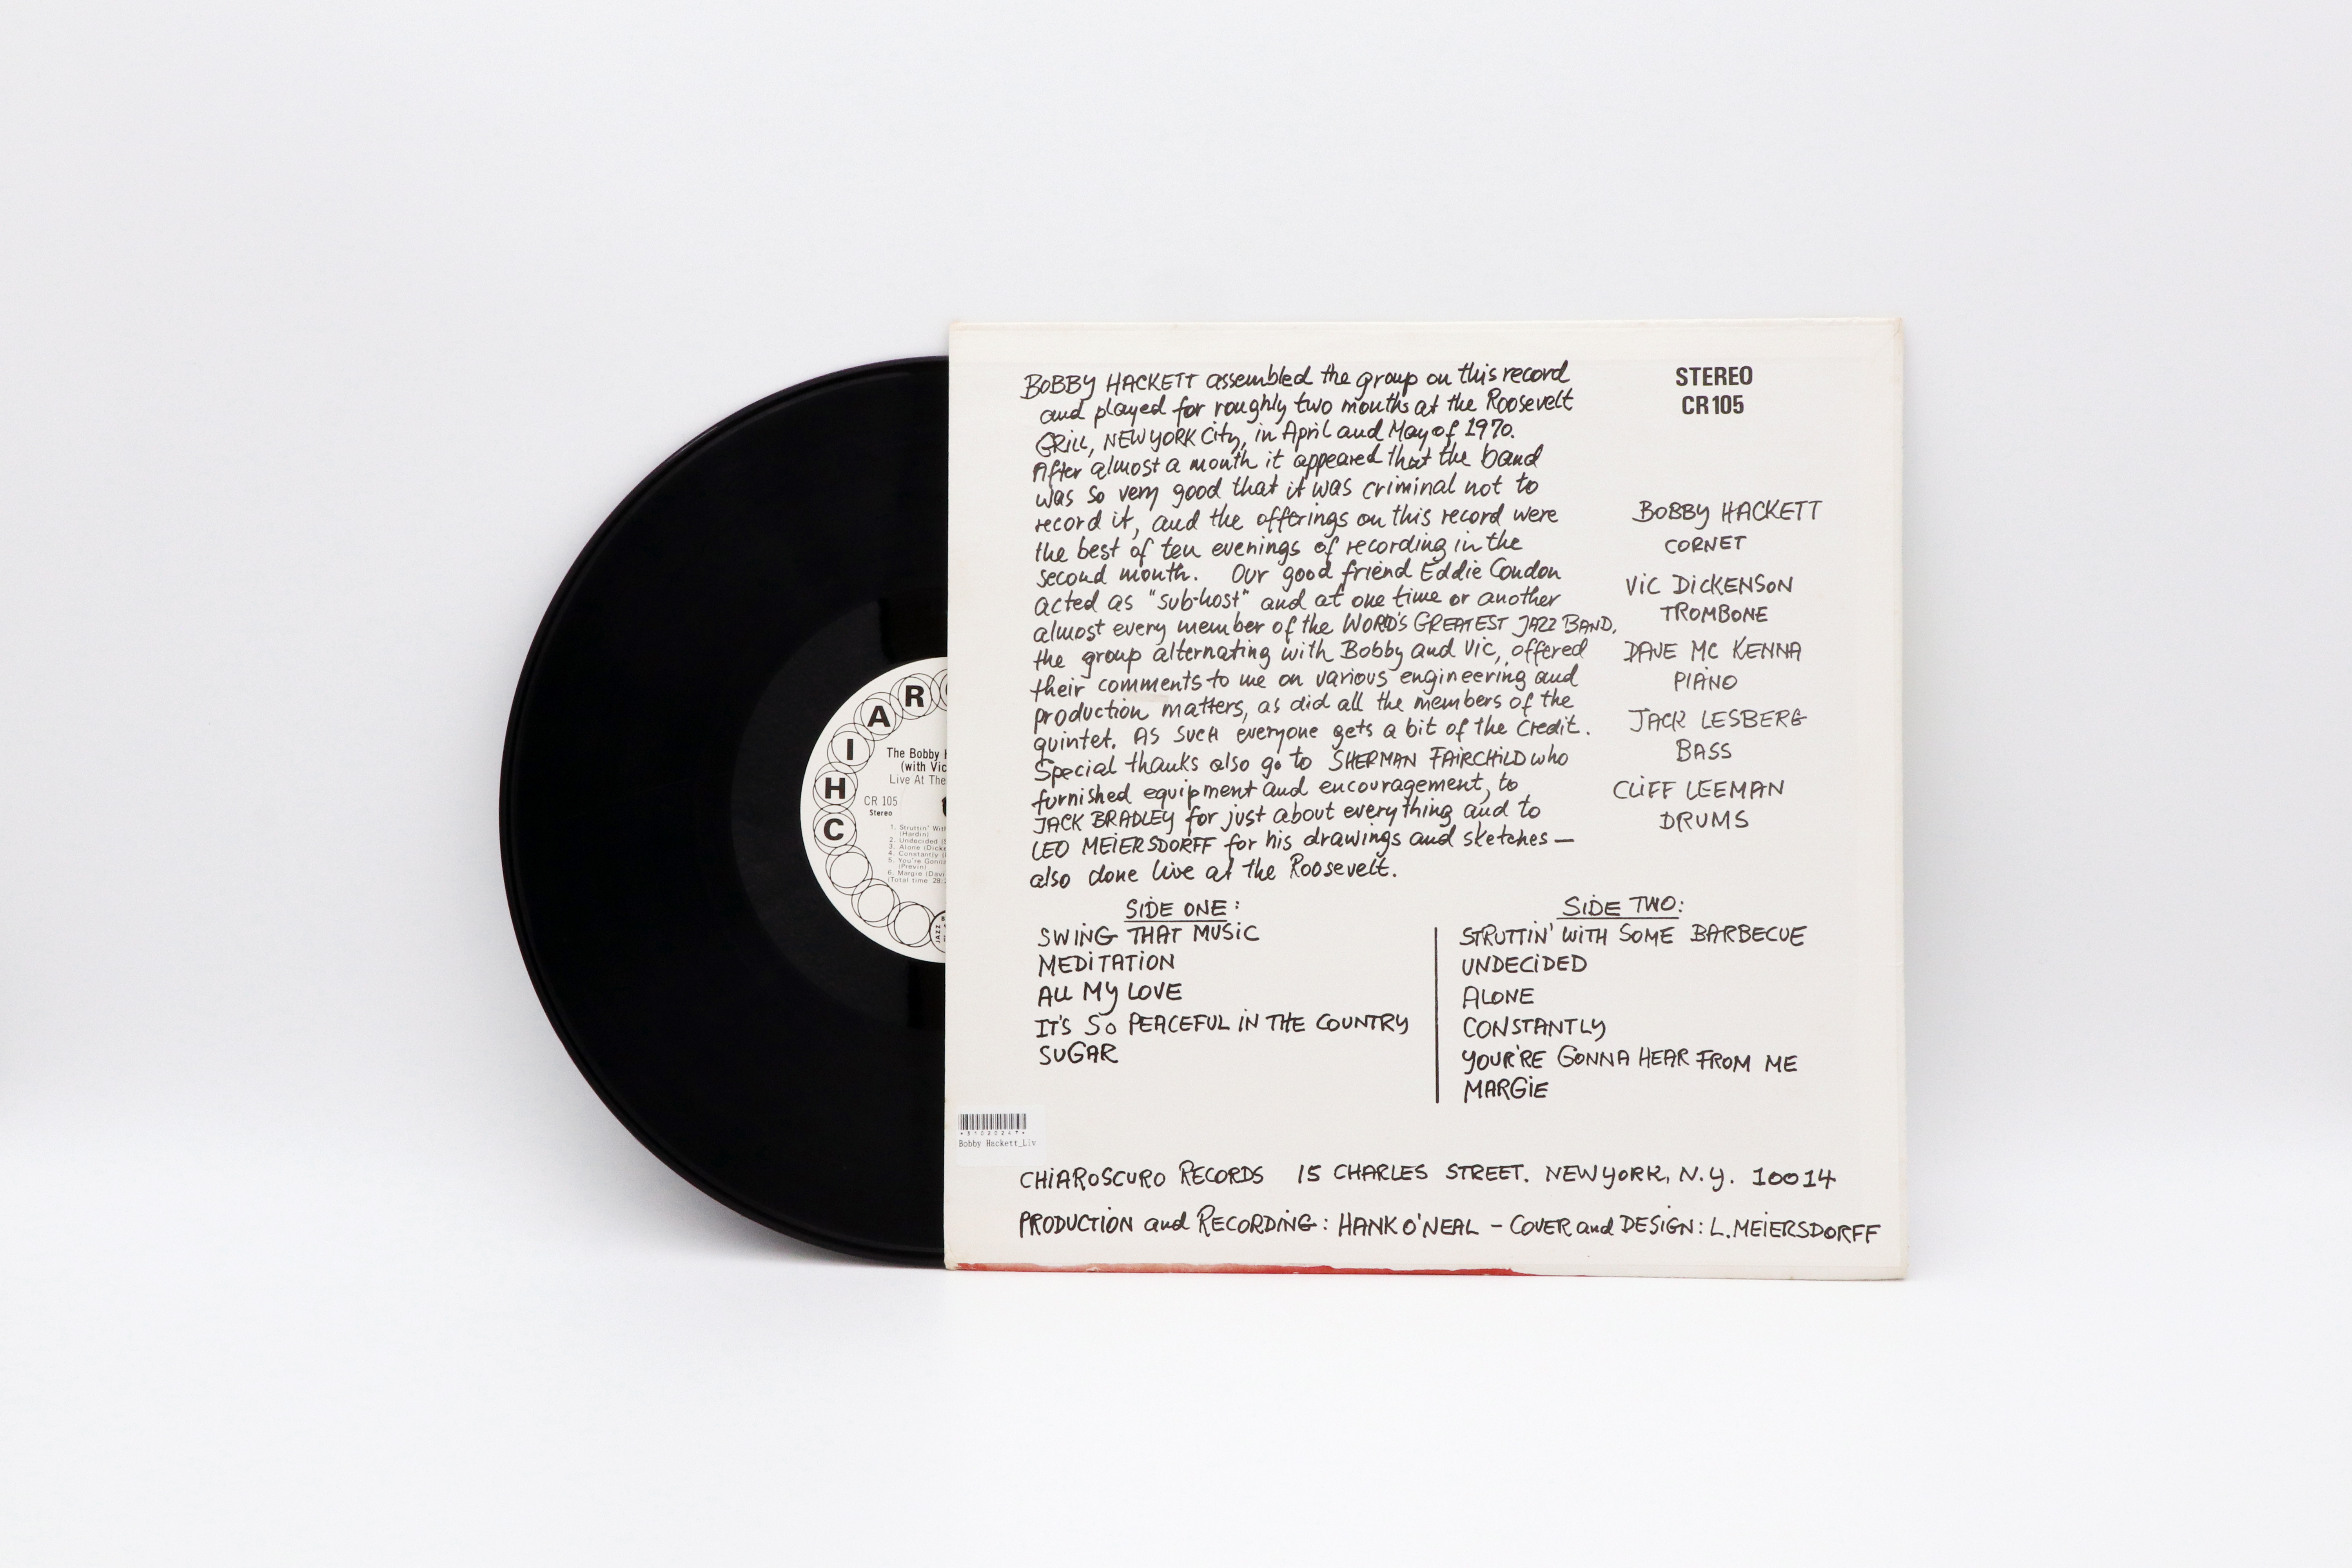 BOBBY HACKETT assembled the group on this record
and played for roughly two months at the Roosevelt
GRILL, NEW YORK City, in April and May of 1970.
After almost a month it appeared that the band
was so very good that it was criminal not to
record it, and the offerings on this record were
the best of ten evenings of recording in the
second month. Our good friend Eddie Condon
acted as "sub-host" and at one time or another
almost every member of the WORLD'S GREATEST JAZZ BAND,
the group alternating with Bobby and Vic, offered
their comments to me on various engineering and
production matters, as did all the members of the
quintet. AS SUCH everyone gets a bit of the credit.
Special thanks also go to SHERMAN FAIRCHILD who
furnished equipment and encouragement, to
JACK BRADLEY for just about everything and to
LEO MEIERSDORFF for his drawings and sketches —
also done live at the Roosevelt.
STEREO
CR 105
BOBBY HACKETT
CORNET
VIC DICKENSON
TROMBONE
DAVE MC KENNA
PIANO
JACK LESBERG
BASS
CLIFF LEEMAN
DRUMS
SIDE ONE:
SWING THAT MUSIC
MEDITATION
ALL MY LOVE
IT'S SO PEACEFUL IN THE COUNTRY
SUGAR
SIDE TWO:
STRUTTIN' WITH SOME BARBECUE
UNDECIDED
ALONE
CONSTANTLY
YOUR'RE GONNA HEAR FROM ME
MARGIE
*31020247*
Bobby Hackett_Liv
CHIAROSCURO RECORDS 15 CHARLES STREET. NEW YORK, N.Y. 10014
PRODUCTION and RECORDING: HANK O'NEAL - COVER and DESIGN: L. MEIERSDORFF
CHIAR
The Bobby H
(with Vic
Live At The
CR 105
Stereo
1. Struttin' With
(Hardin)
2. Undecided (S
3. Alone (Dicke
4. Constantly (
5. You're Gonna
(Previn)
6. Margie (Davi
(Total time 28:2
JAZZ